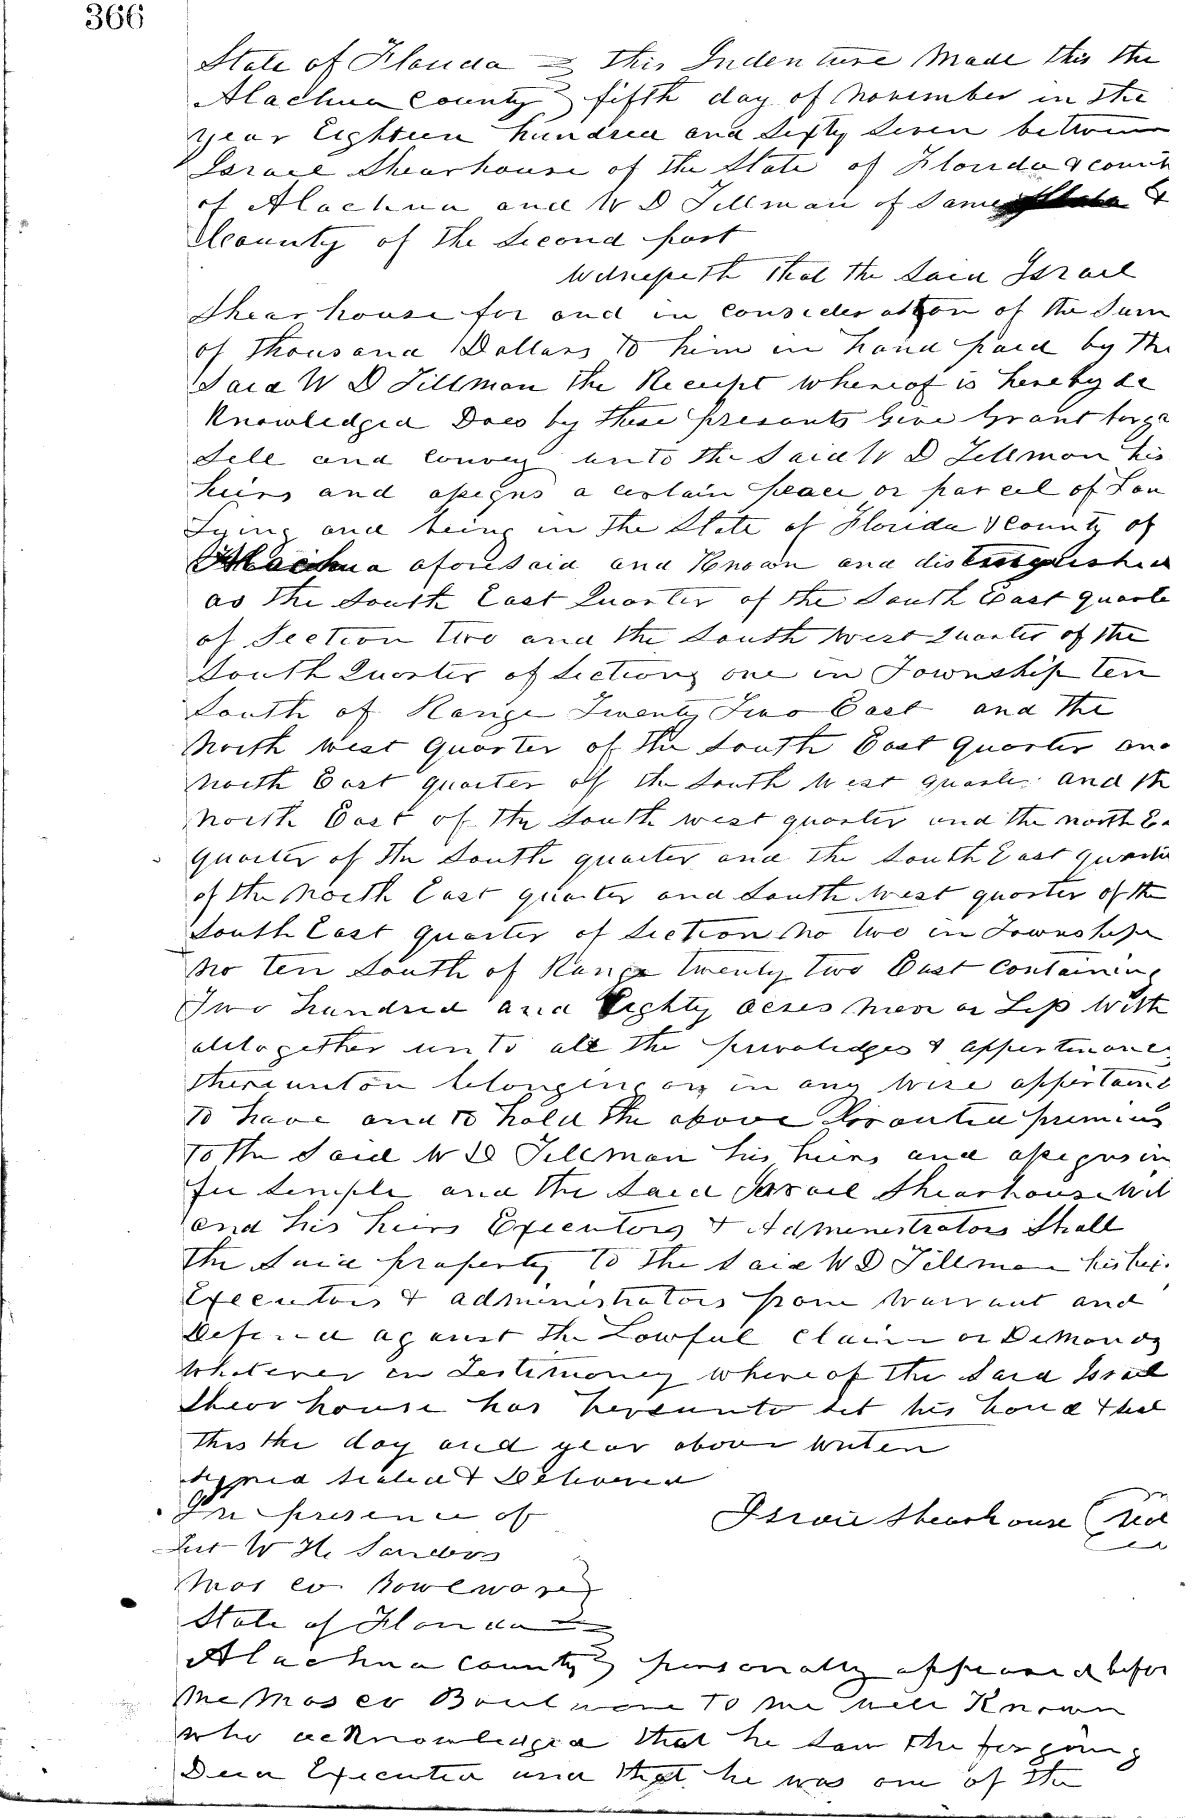 366
State of Florida } This Indenture Made this the
Alachua County } fifth day of November in the
year Eighteen hundred and Sixty Seven between
Israel Shearhouse of the State of Florida & count
of Alachua and W D Tillman of Same &
County of the Second part
Witnesseth that the Said Israel
Shearhouse for and in consideration of the Sum
of Thousand Dollars to him in hand paid by the
Said W D Tillman the Receipt whereof is hereby ac
Knowledged Does by these presents Give Grant barga
Sell and convey unto the Said W D Tillman his
heirs and assigns a certain peace or parcel of Lan
Lying and being in the State of Florida & County of
Alachua aforesaid and Known and distinguished
as the South East Quarter of the South East quarte
of Section Two and the South West Quarter of the
South Quarter of Section one in Township ten
South of Range Twenty Two East and the
North West Quarter of the South East Quarter and
North East quarter of the South West quarter and th
North East of the South west quarter and the north Ea
quarter of the South quarter and the South East quarter
of the North East quarter and South West quarter of the
South East Quarter of Section No two in Township
No ten South of Range twenty two East containing
Two hundred and Eighty acres more or Less With
altogether unto all the privaledges & appertinance
thereunton belonging or in any wise appertaine
To have and to hold the above Granted premises
To the Said W D Tillman his heirs and assigns in
fee Simple and the Said Israel Shearhouse Will
and his heirs Executors & Administrators Shall
the Said property to the Said W D Tillman his hei
Executors & administrators from Warrant and
Defend against the Lawful claim or Demands
Whatever in Testimoney whereof the Said Israel
Shearhouse has hereunto Set his hand & Seal
This the day and year above writen
Signed Sealed & Delivered
In presence of Israel Shearhouse Seal
W H Sanders
Moses Bowlware }
State of Florida }
Alachua County } personally appeared befor
Me Moses Boulware To me well Known
who acknowledged that he Saw the forgoing
Deed Executed and that he was one of the